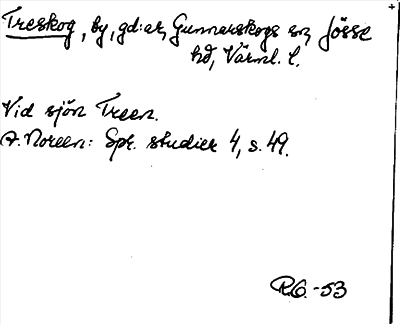 Treskog, by, gd:ar, Gunnarskogs sn, Jösse
hd, Värml. l.
Vid sjön Treen.
A. Noreen: Spr. studier 4, s. 49.
R.G. -53